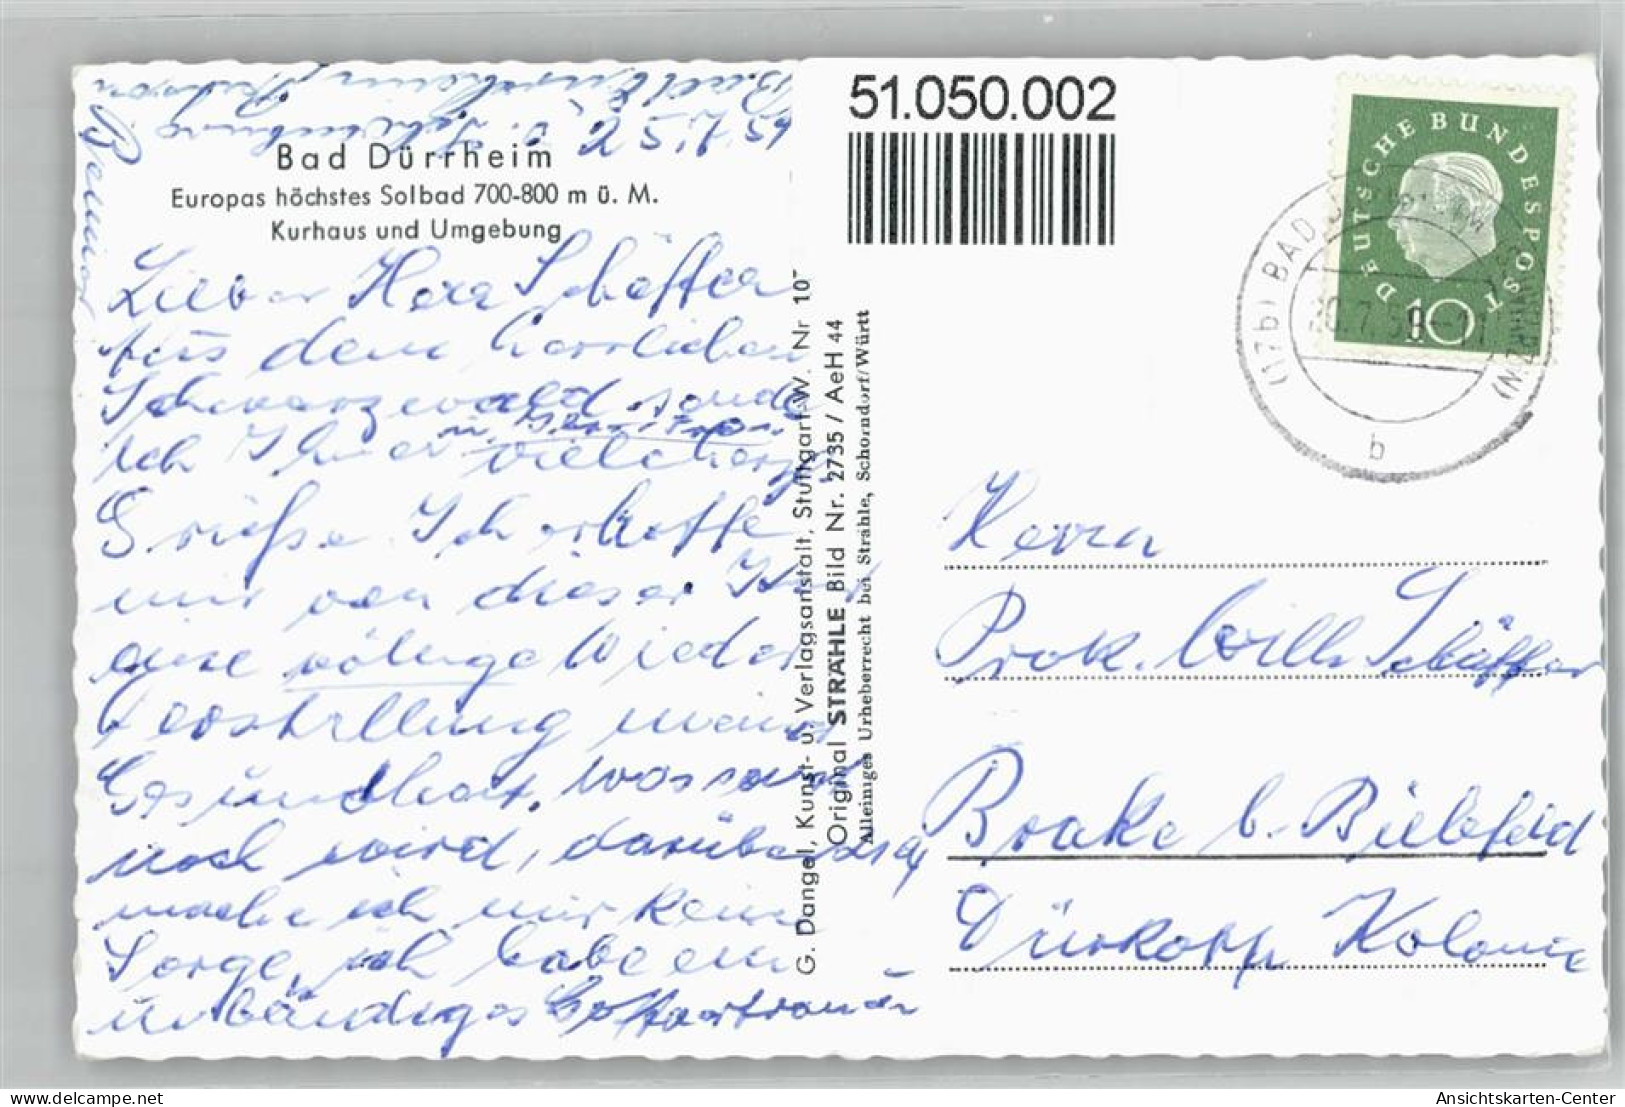 Bad Dürrheim
Europas höchstes Solbad 700-800 m ü. M.
Kurhaus und Umgebung
Lieber Herr Schäffer
Aus dem herrlichen
Schwarzwald sende
ich Ihnen vielc herzl.
Grüße. Ich erhoffe
mir von dieser Kur
eine völlige Wieder
herstellung meiner
Gesundheit, was sonst
noch wird, darüber
mache ich mir keine
Sorge, ich habe ein
unbändiges Gottvertrauen
G. Dangel, Kunst- u. Verlagsanstalt, Stuttgart-W. Nr 10
Original STRÄHLE Bild Nr. 2735 / AeH 44
Alleiniges Urheberrecht bei Strähle, Schorndorf/Württ
51.050.002
DEUTSCHE BUNDESPOST
10
(17b) BAD
b
Herrn
Prok. Willi Schäffer
Brake b. Bielefeld
Dürkopp Kolonie
delcampe.net
Ansichtskarten-Center